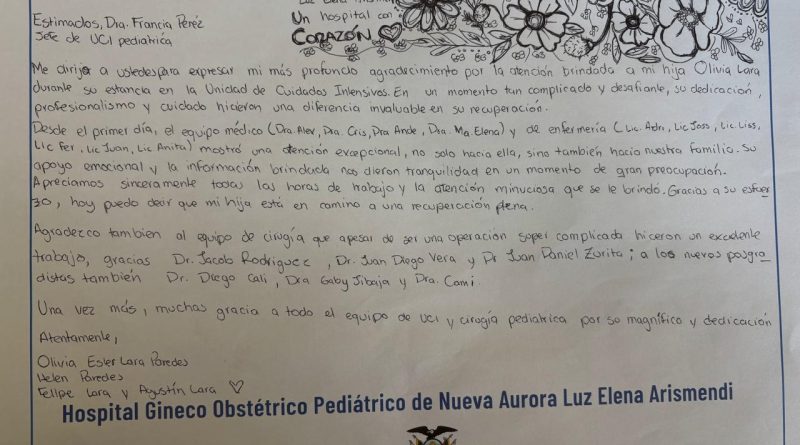 Un hospital con
CORAZÓN
Estimados, Dra. Francia Peréz
Jefe de UCI pediatrica
Me dirijo a ustedes para expresar mi más profundo agradecimiento por la atención brindada a mi hija Olivia Lara
durante su estancia en la Unidad de Cuidados Intensivos. En un momento tan complicado y desafiante, su dedicación,
profesionalismo y cuidado hicieron una diferencia invaluable en su recuperación.
Desde el primer día, el equipo médico (Dra. Alex, Dra. Cris, Dra Ande, Dra. Ma. Elena) y de enfermería (Lic. Adri, Lic Joss, Lic. Liss,
Lic Fer, Lic Juan, Lic Anita) mostró una atención excepcional, no solo hacia ella, sino también hacia nuestra familia. Su
apoyo emocional y la información brindada nos dieron tranquilidad en un momento de gran preocupación.
Apreciamos sinceramente todas las horas de trabajo y la atención minuciosa que se le brindó. Gracias a su esfuer
zo, hoy puedo decir que mi hija está en camino a una recuperación plena.
Agradezco tambien al equipo de cirugía que apesar de ser una operación super complicada hiceron un excelente
trabajo, gracias Dr. Jacob Rodriguez, Dr. Juan Diego Vera y Dr Juan Daniel Zurita; a los nuevos posgra
distas también Dr. Diego Cali, Dra Gaby Jibaja y Dra. Cami.
Una vez más, muchas gracia a todo el equipo de UCI y cirugía pediatrica por su magnífico y dedicación
Atentamente,
Olivia Ester Lara Paredes
Helen Paredes
Felipe Lara y Agustín Lara ♡
Hospital Gineco Obstétrico Pediátrico de Nueva Aurora Luz Elena Arismendi